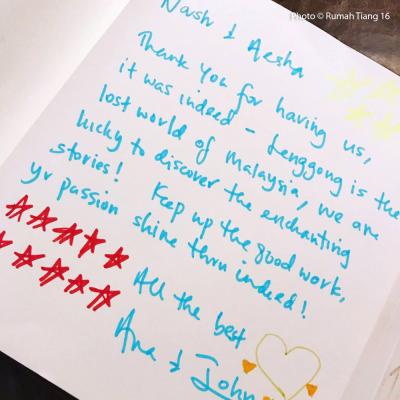 Photo © Rumah Tiang 16
Nash & Aesha
Thank you for having us,
it was indeed - Lenggong is the
lost world of Malaysia, we are
lucky to discover the enchanting
stories! Keep up the good work,
yr passion shine thru indeed!
All the best
Ana & John